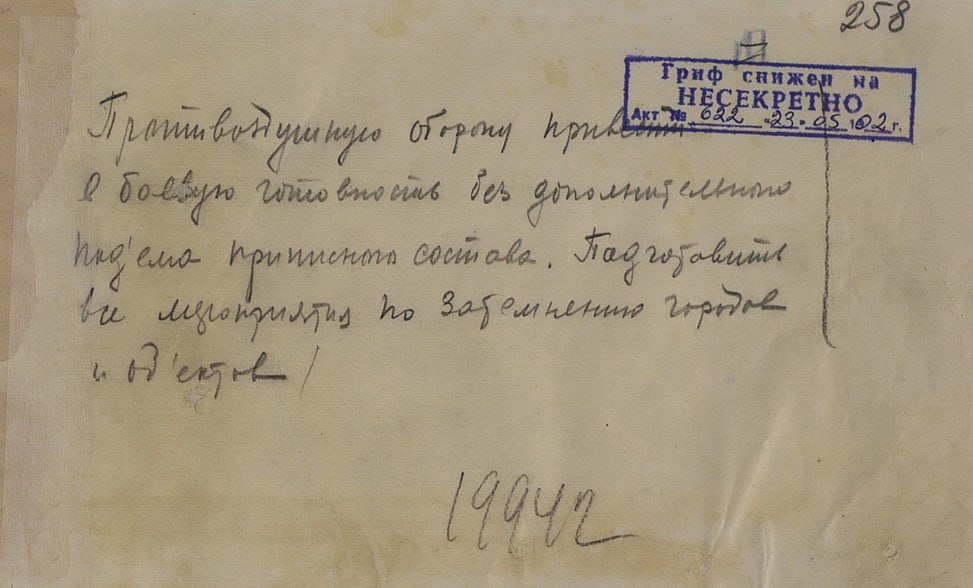 258
Гриф снижен на
НЕСЕКРЕТНО
Акт № 622 "23" 05 02 г.
Противовоздушную оборону привести
в боевую готовность без дополнительного
под'ема приписного состава. Подготовить
все мероприятия по затемнению городов
и об'ектов